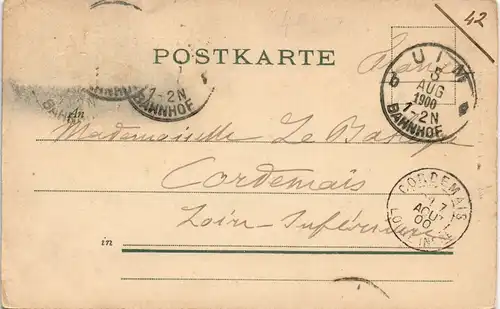 42
POSTKARTE
ULM
5
AUG
1900
7-2N
BAHNHOF
7-2N
BAHNHOF
BAHNHOF
An
Mademoiselle Le
Cordemais
Loire-Inférieure
in
CORDEMAIS
7
AOUT
00